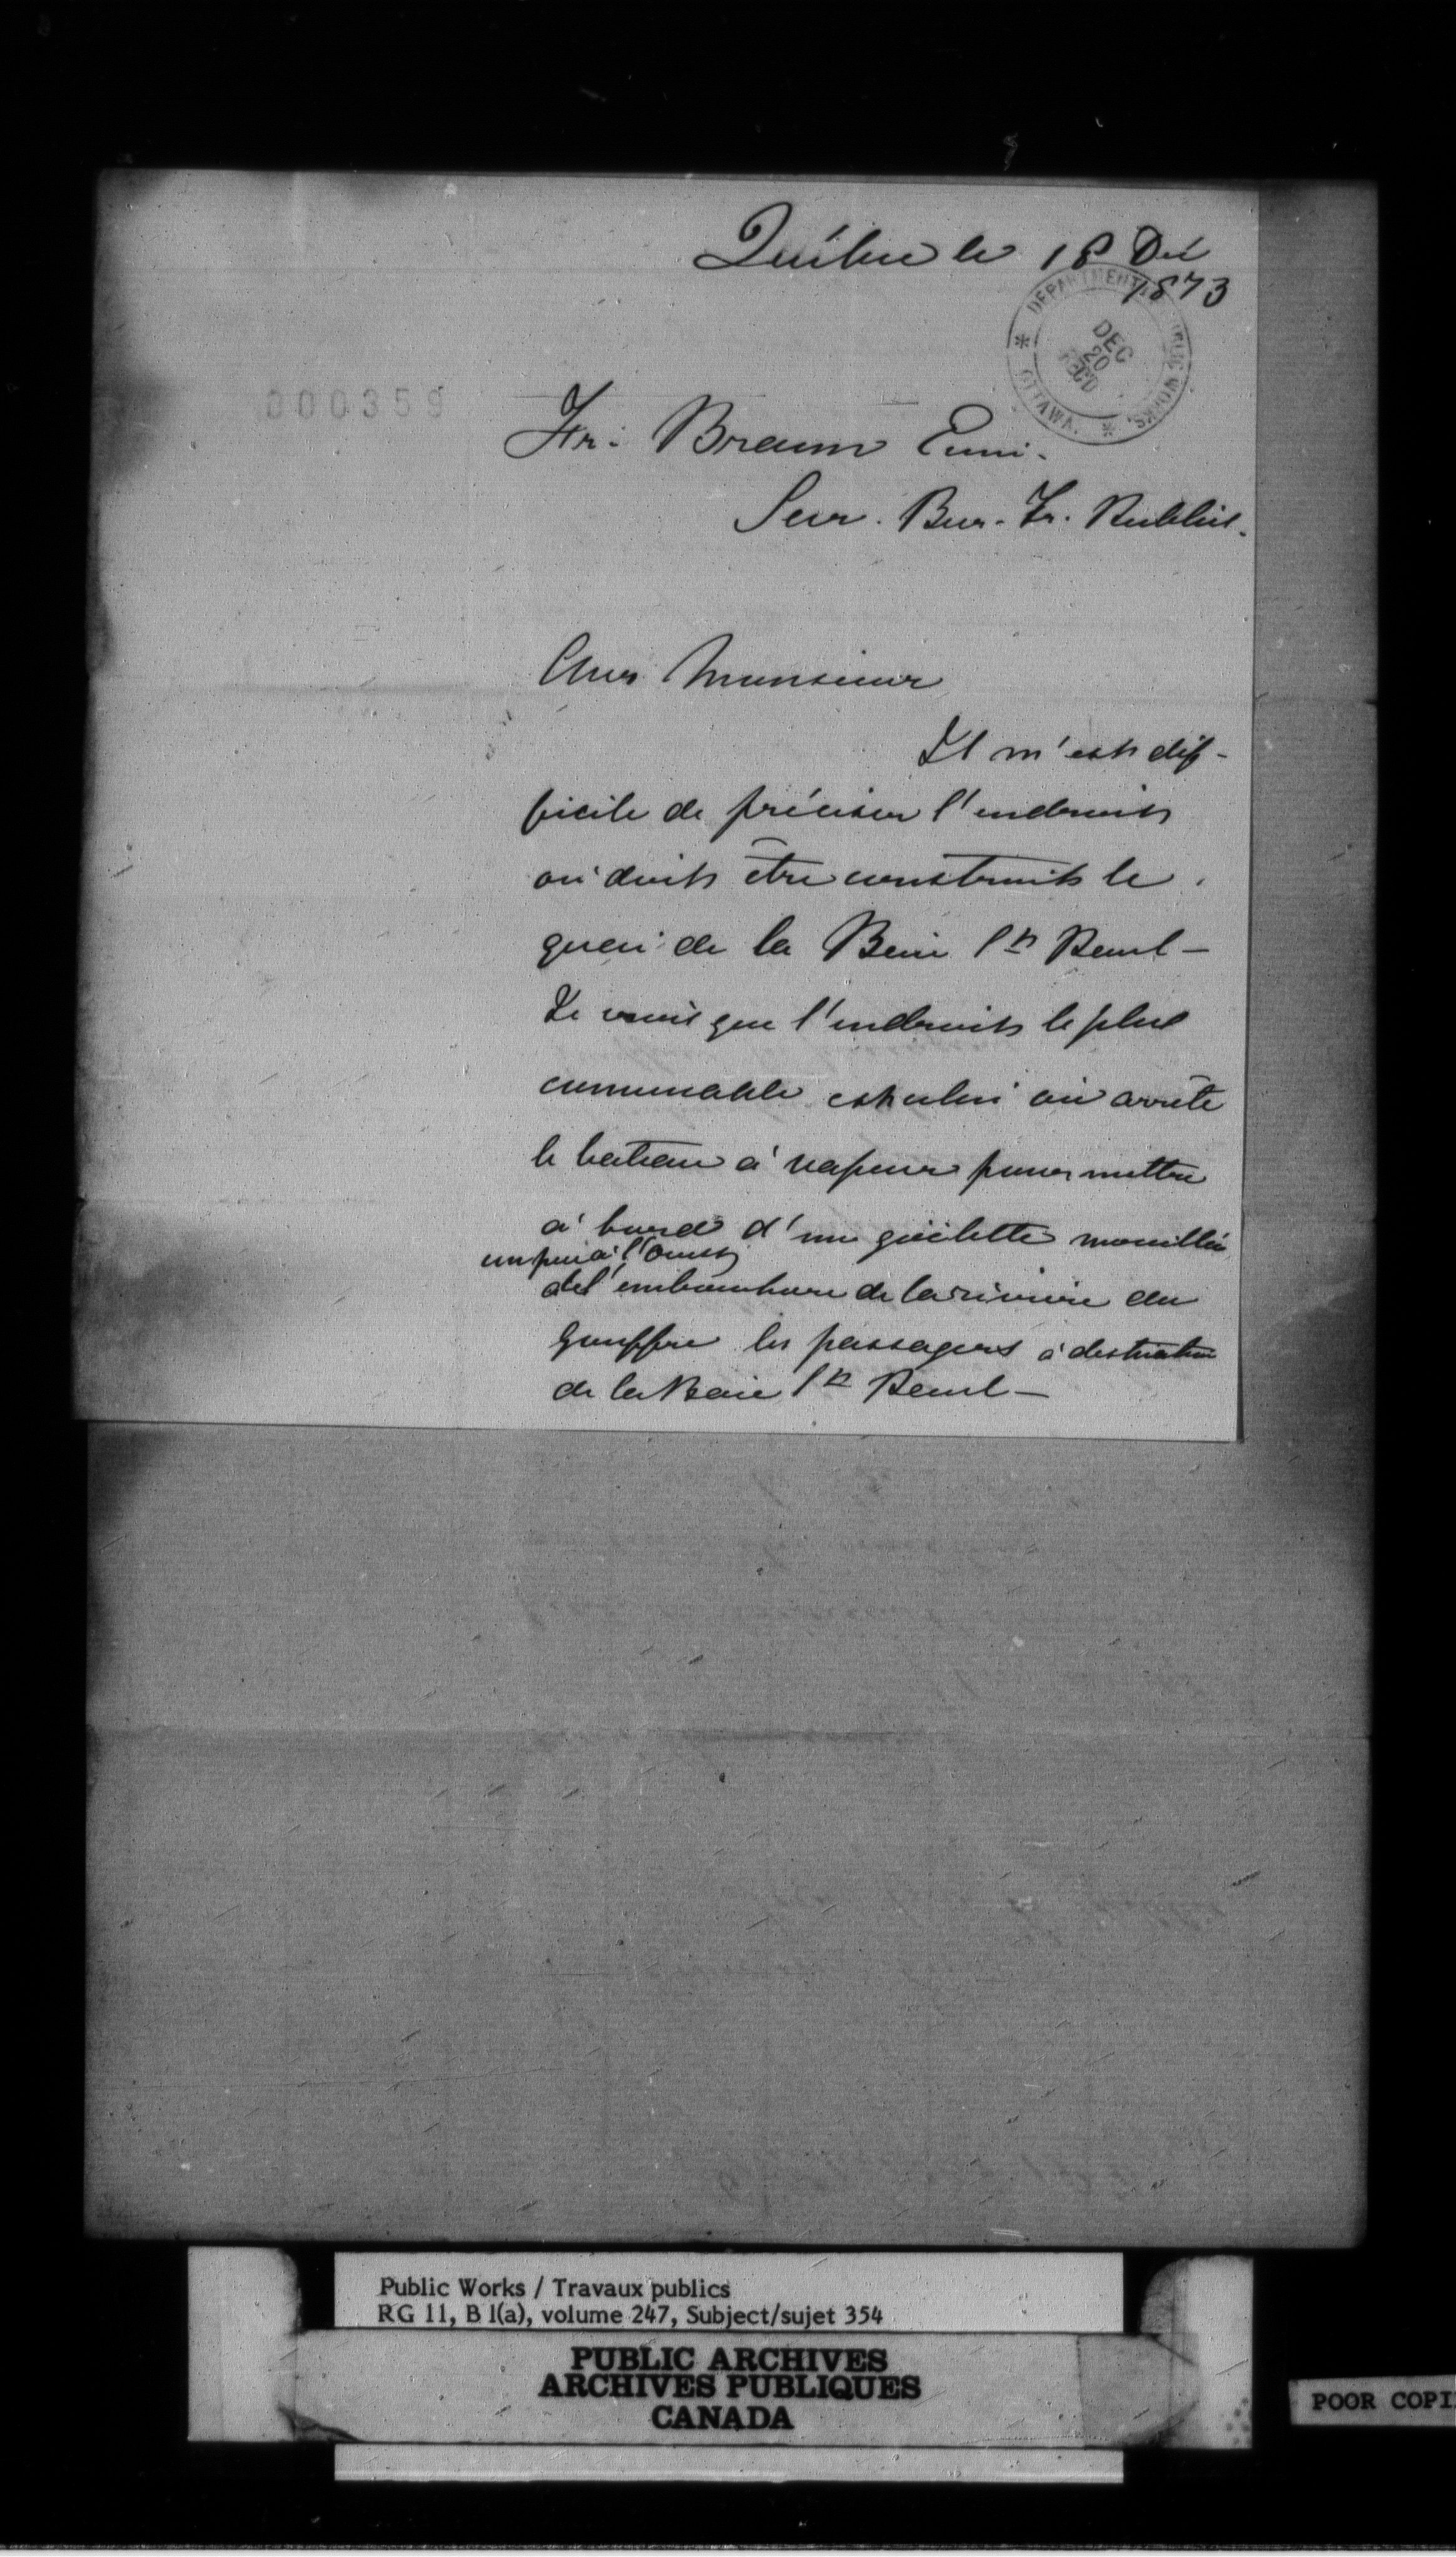 Québec le 18 Déc
1873
DEPARTMENT PUBLIC WORKS.
* OTTAWA. *
DEC
20
RECD
000359
Fr: Braun Ecuier.
Secr. Bur. Tr. Publics.
Cher Monsieur
Il m'est dif-
ficile de préciser l'endroit
où doit être construit le
quai de la Baie St Paul —
Je crois que l'endroit le plus
convenable est celui où arrête
le bateau à vapeur pour mettre
à bord d'une goëlette mouillée
un peu à l'Ouest
de l'embouchure de la rivière du
Gouffre les passagers à destination
de la Baie St Paul —
Public Works / Travaux publics
RG 11, B 1(a), volume 247, Subject/sujet 354
PUBLIC ARCHIVES
ARCHIVES PUBLIQUES
CANADA
POOR COPI